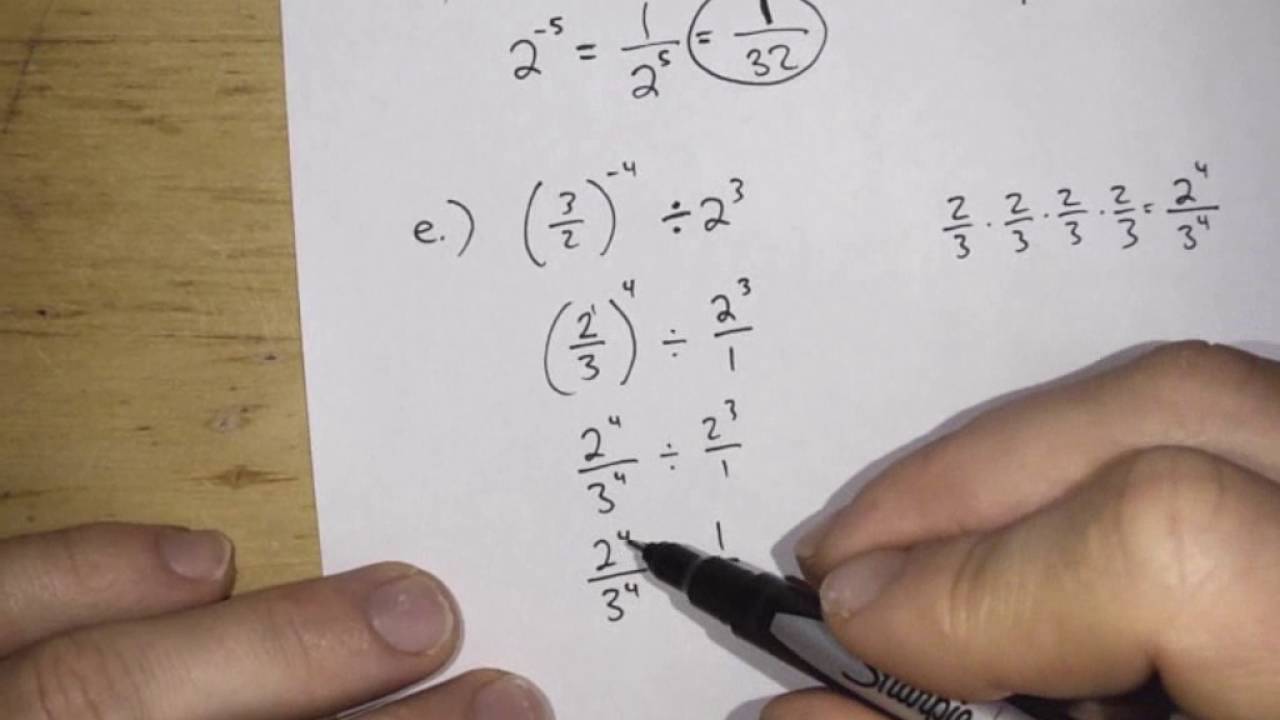 2^-5 = 1/2^5 = 1/32
e.) (3/2)^-4 ÷ 2^3
2/3 · 2/3 · 2/3 · 2/3 = 2^4/3^4
(2^1/3)^4 ÷ 2^3/1
2^4/3^4 ÷ 2^3/1
2^4/3^4 1
Sharpie